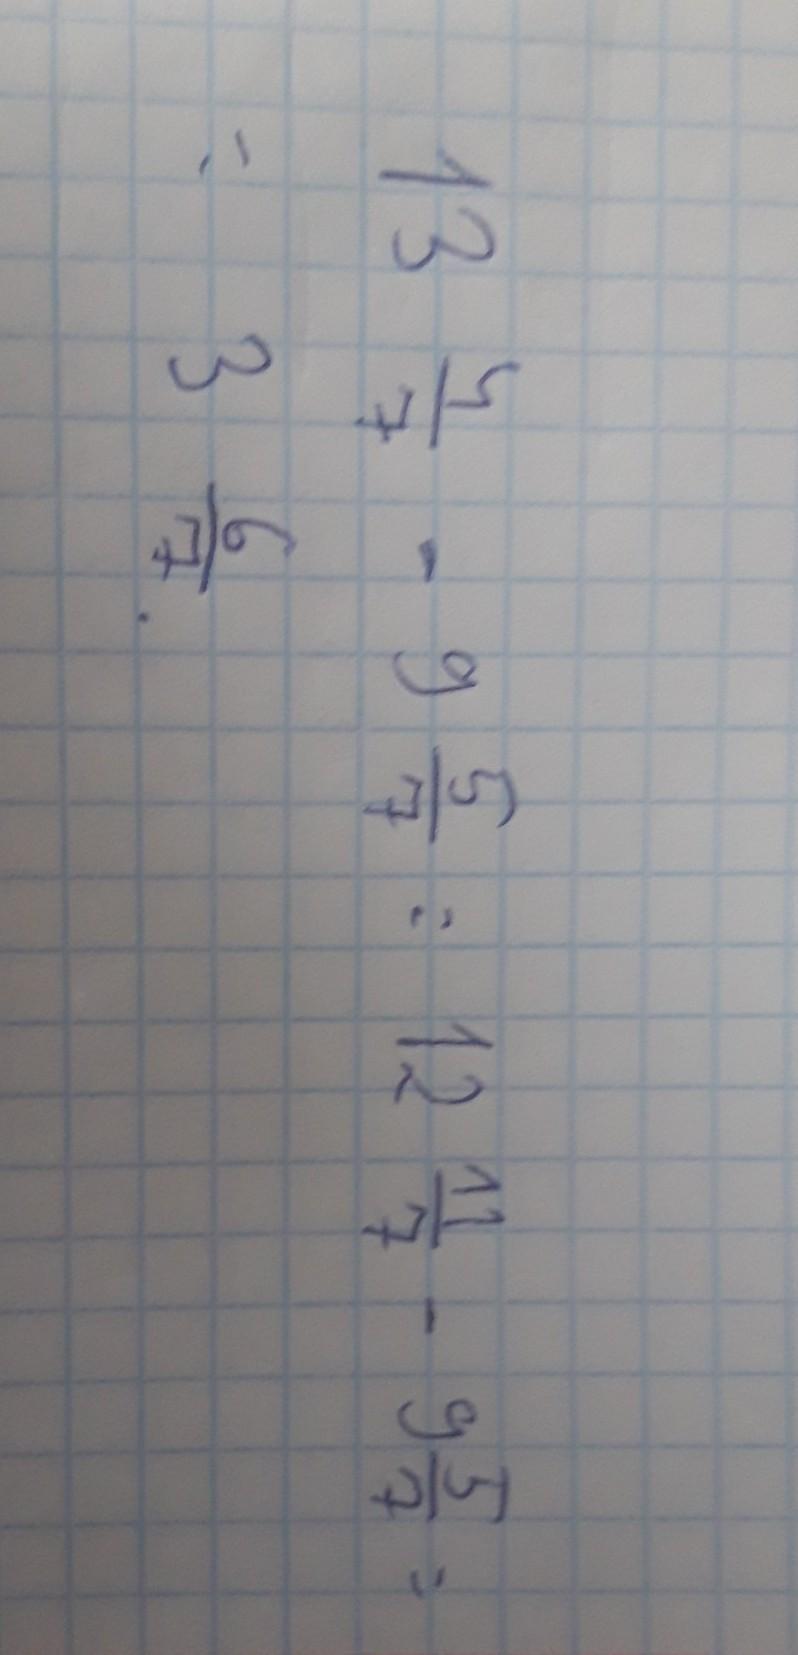 13 4/7 - 9 5/7 = 12 11/7 - 9 5/7 =
= 3 6/7.